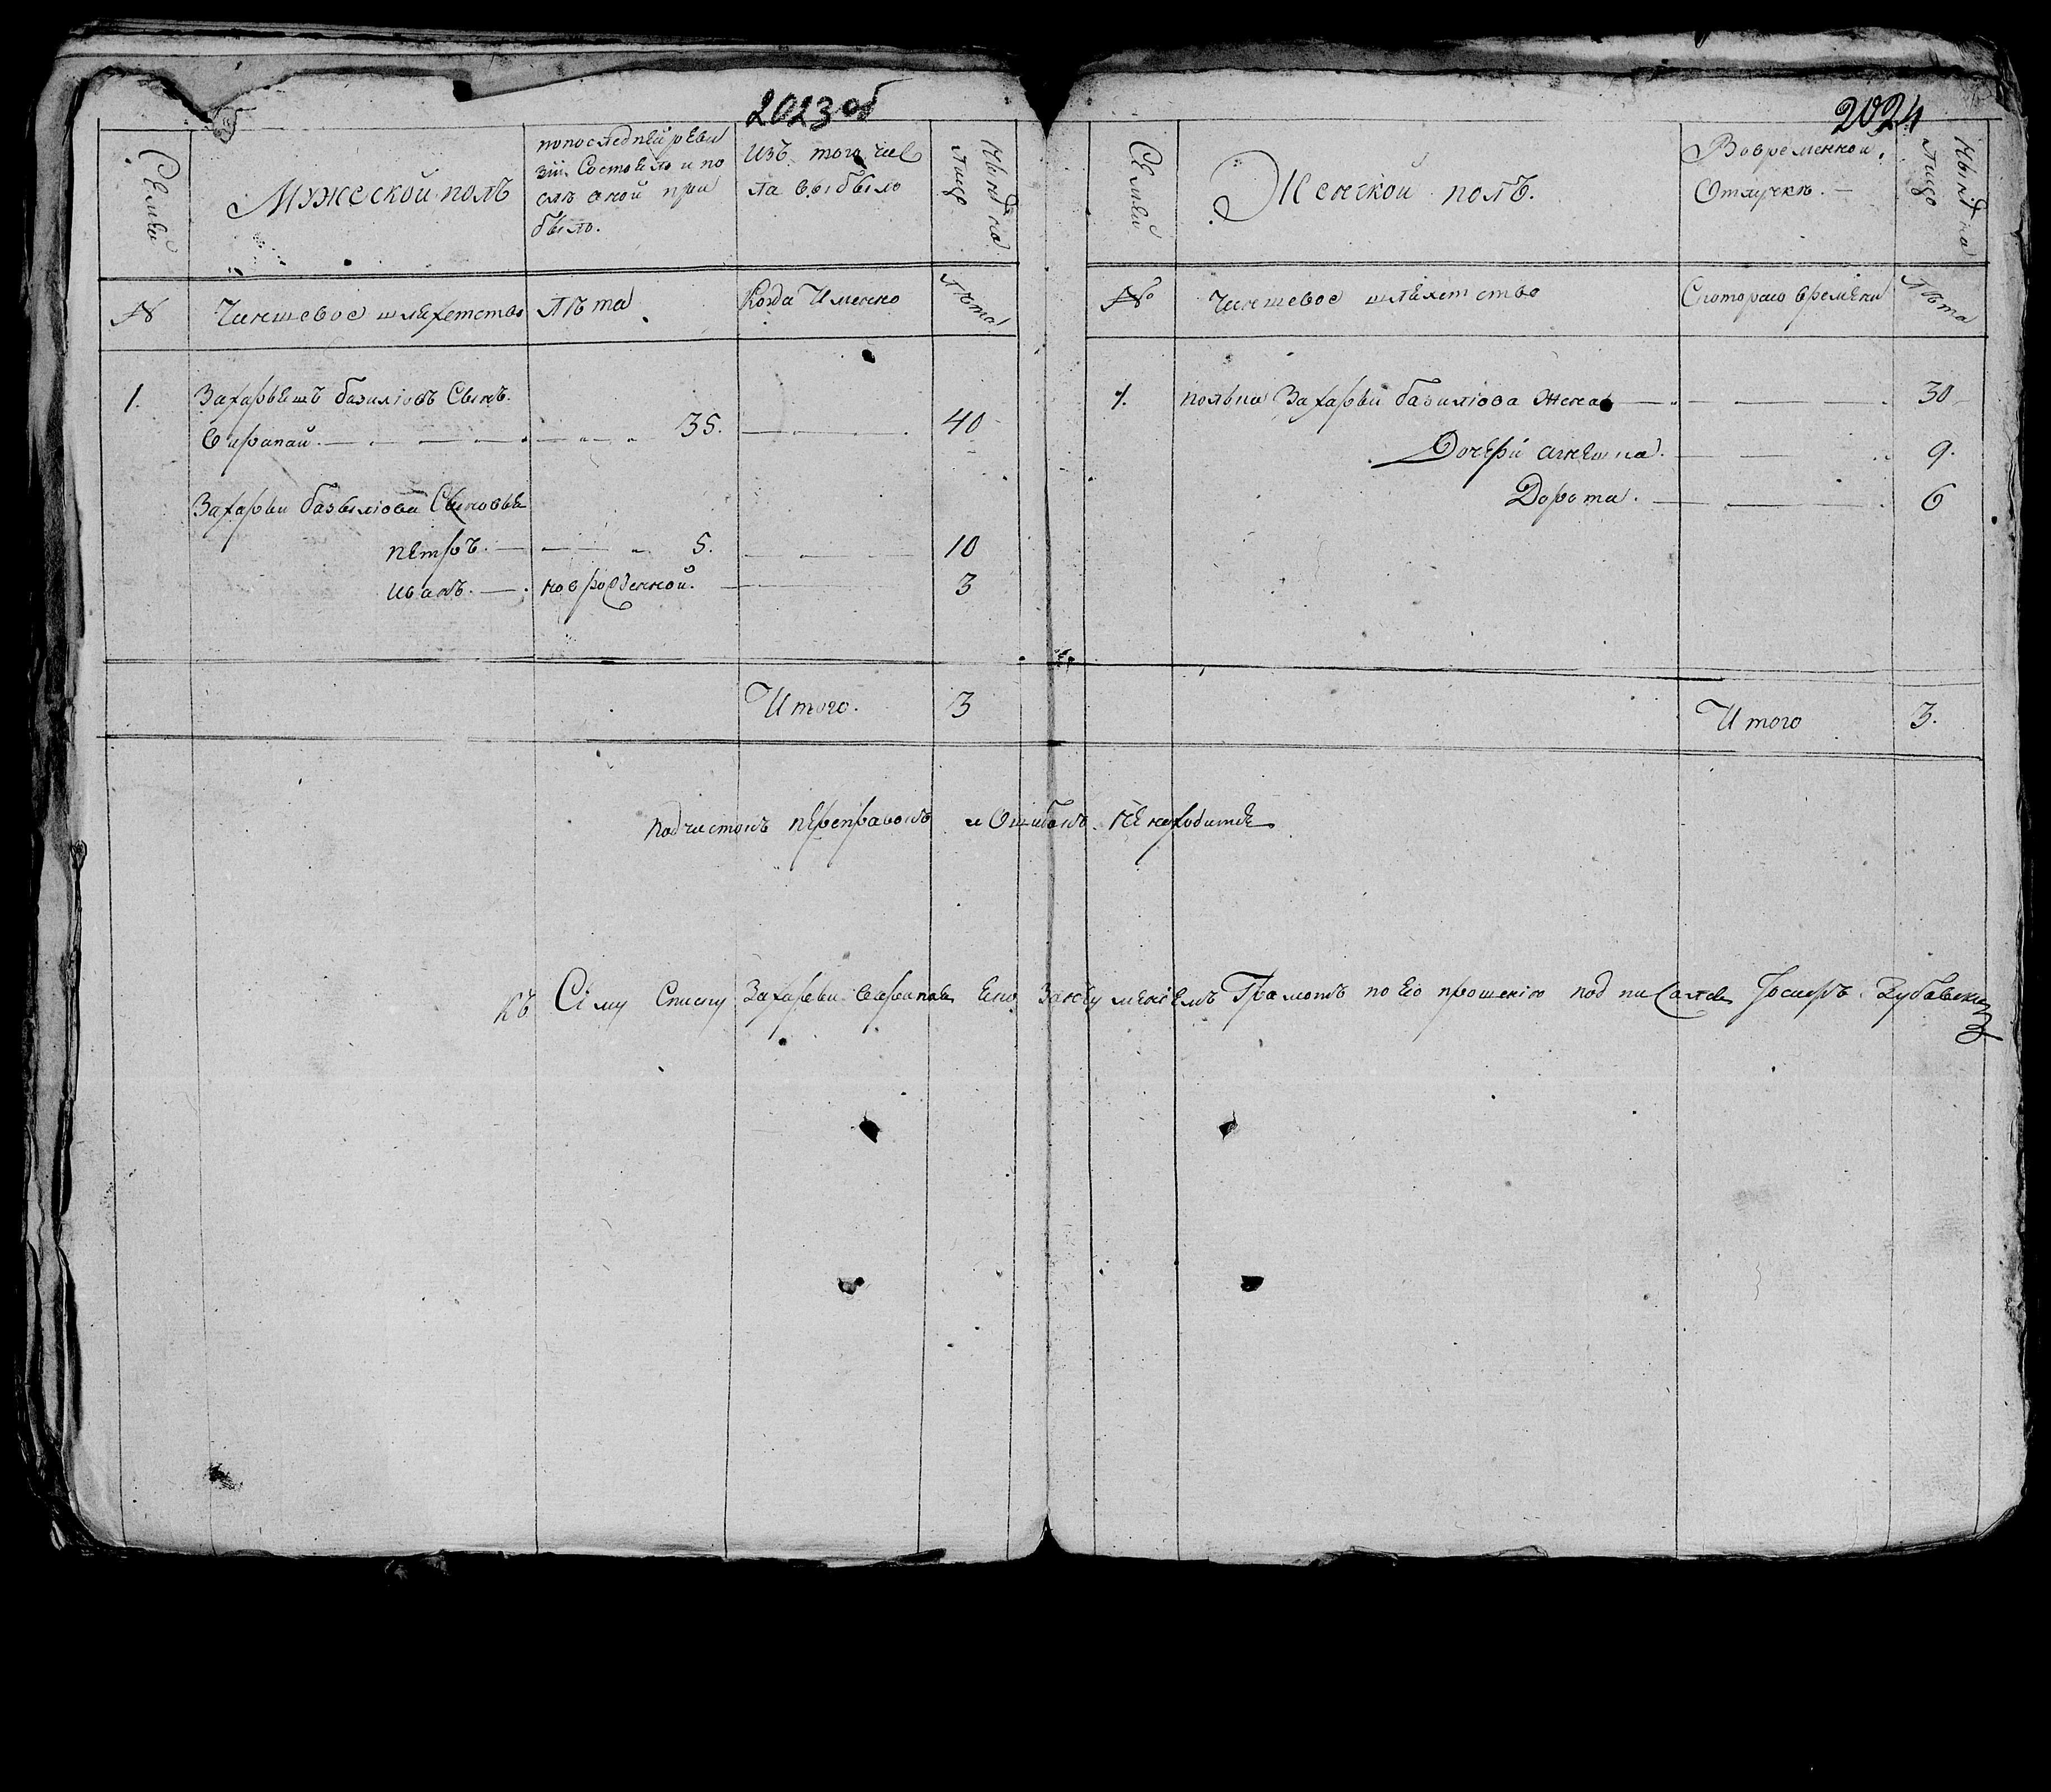 2023об
Семьи
Мужеской полъ
по последней реви
зіи Состояло и по
слѣ оной при
было.
Изъ того чис
ла выбыло
Нынѣ на
лицо
№
Чиншевое шляхетство
Лѣта
Когда Именно
Лѣта
1.
Захаріяшъ базиліовъ Сынъ.
35.
40
Захарыи базыліови Сыновья
петръ.
5.
10
иванъ.
новрожденной.
3
Итого.
3
2024
Семьи
Женской полъ.
Вовременной
Отлучкѣ.
Нынѣ на
лицо
№
Чиншевое шляхетство
Скотораго времѣни
Лѣта
1.
Захарыи базиліова Жена
30
Дочери агнешка.
9.
Дорота.
6
Итого
3.
подчистокъ переправокъ и Ошибокъ не находится
къ Сему Списку Захарыи его Грамотѣ по его прошенію подписался